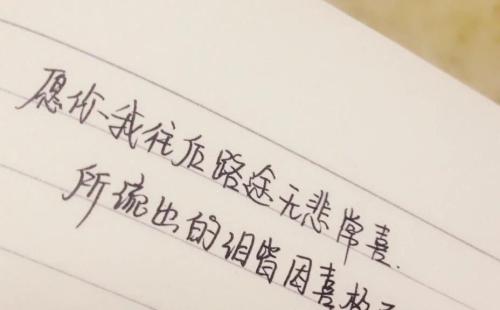 愿你、我往后路途无悲常喜.
所流出的泪皆因喜极